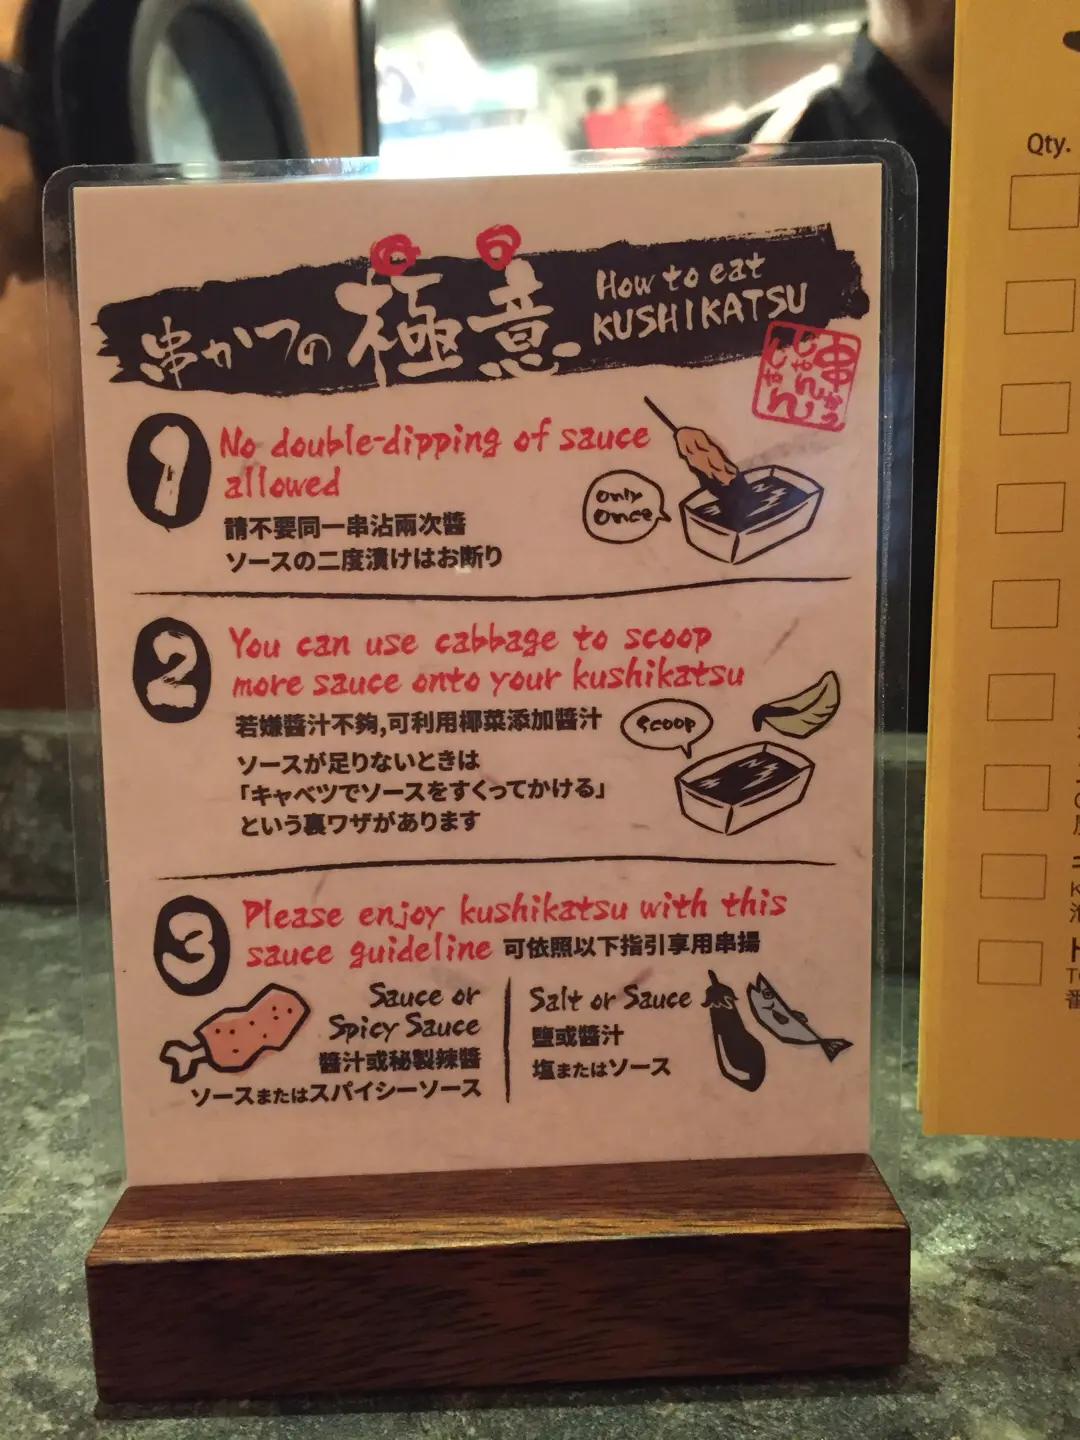 串かつの極意
How to eat
KUSHIKATSU
串かつ
じゃんじゃん
1
No double-dipping of sauce
allowed
請不要同一串沾兩次醬
ソースの二度漬けはお断り
Only
Once
2
You can use cabbage to scoop
more sauce onto your kushikatsu
若嫌醬汁不夠,可利用椰菜添加醬汁
ソースが足りないときは
「キャベツでソースをすくってかける」
という裏ワザがあります
Scoop
3
Please enjoy kushikatsu with this
sauce guideline 可依照以下指引享用串揚
Sauce or
Spicy Sauce
醬汁或秘製辣醬
ソースまたはスパイシーソース
Salt or Sauce
鹽或醬汁
塩またはソース
Qty.